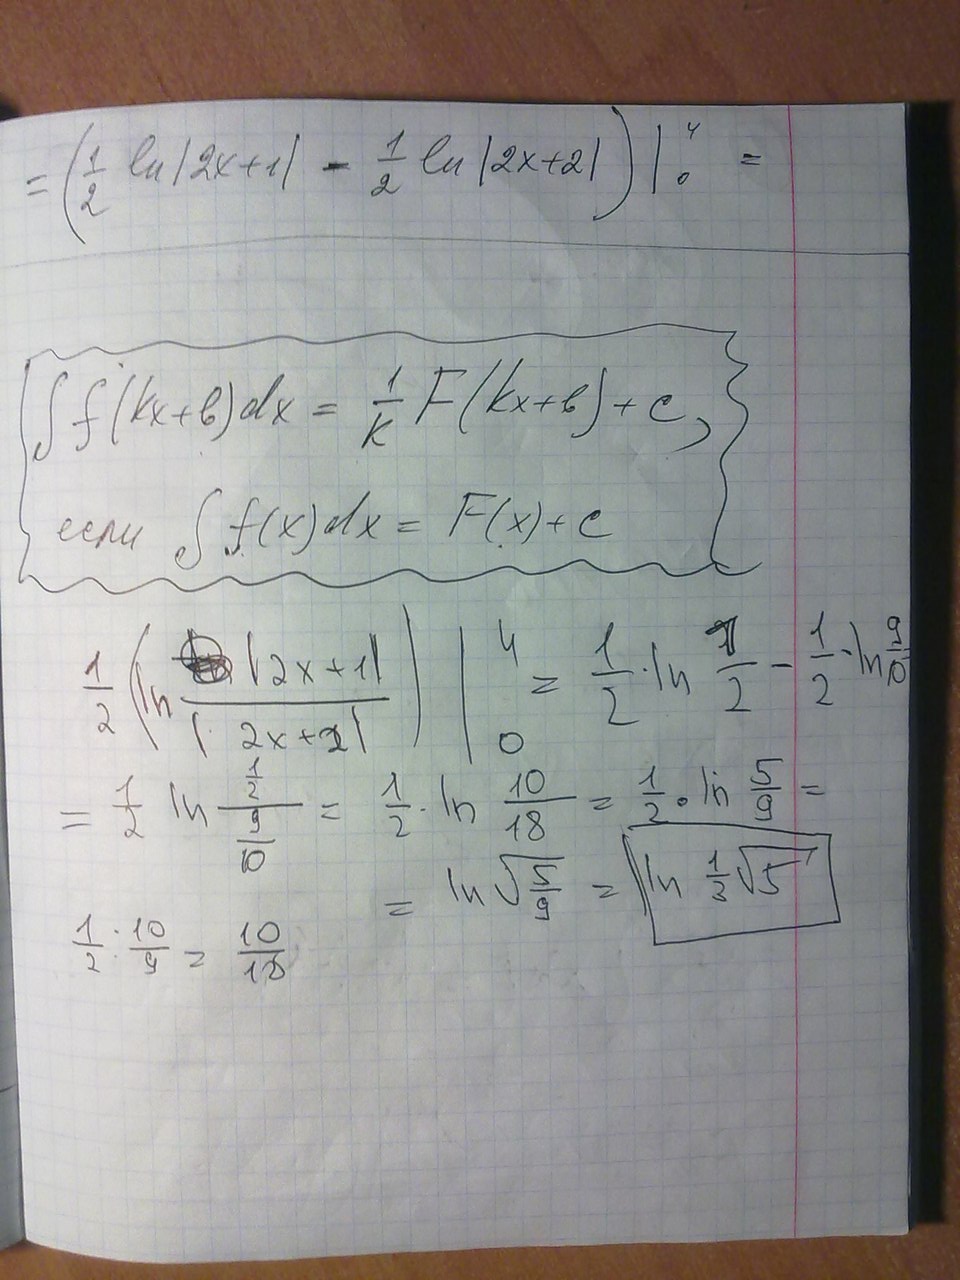 = (1/2 ln|2x+1| - 1/2 ln|2x+2|) |₀⁴ =
∫ f(kx+в)dx = 1/k F(kx+в)+c,
если ∫ f(x)dx = F(x)+c
1/2 (ln |2x+1|/|2x+2|) |₀⁴ = 1/2 · ln 1/2 - 1/2 · ln 9/10
= 1/2 ln (1/2)/(9/10) = 1/2 · ln 10/18 = 1/2 · ln 5/9 =
= ln √(5/9) = ln 1/3 √5
1/2 · 10/9 = 10/18